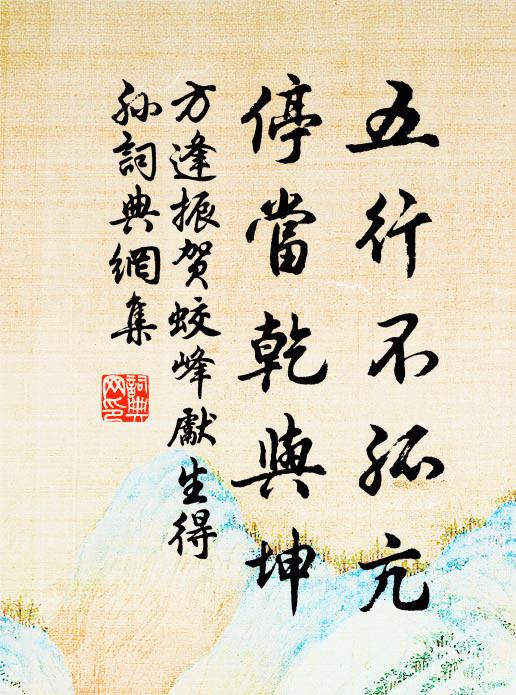 五行不孤亢
停當乾與坤
方逢振贺蛟峰獻生得
孙詞典網集
詞典
网印